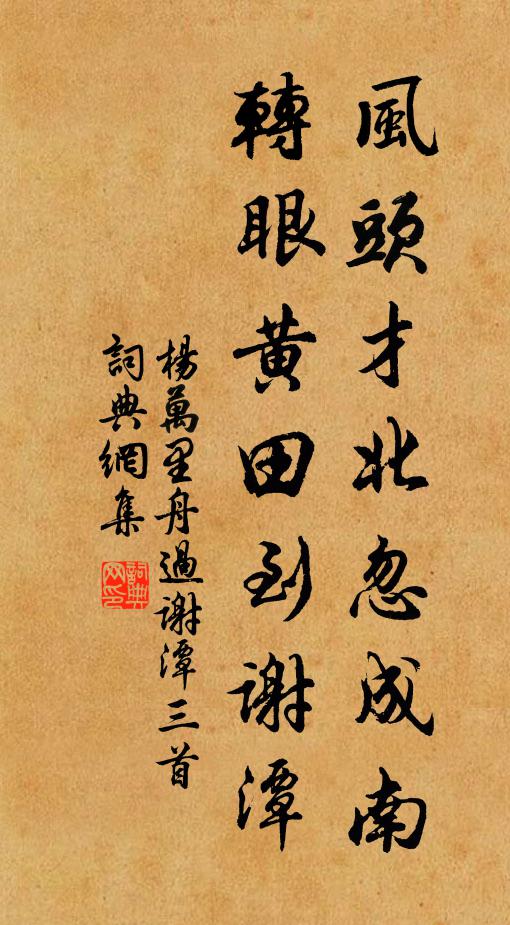 風頭才北忽成南
轉眼黃田到謝潭
楊萬里舟過謝潭三首
詞典網集
詞典網印